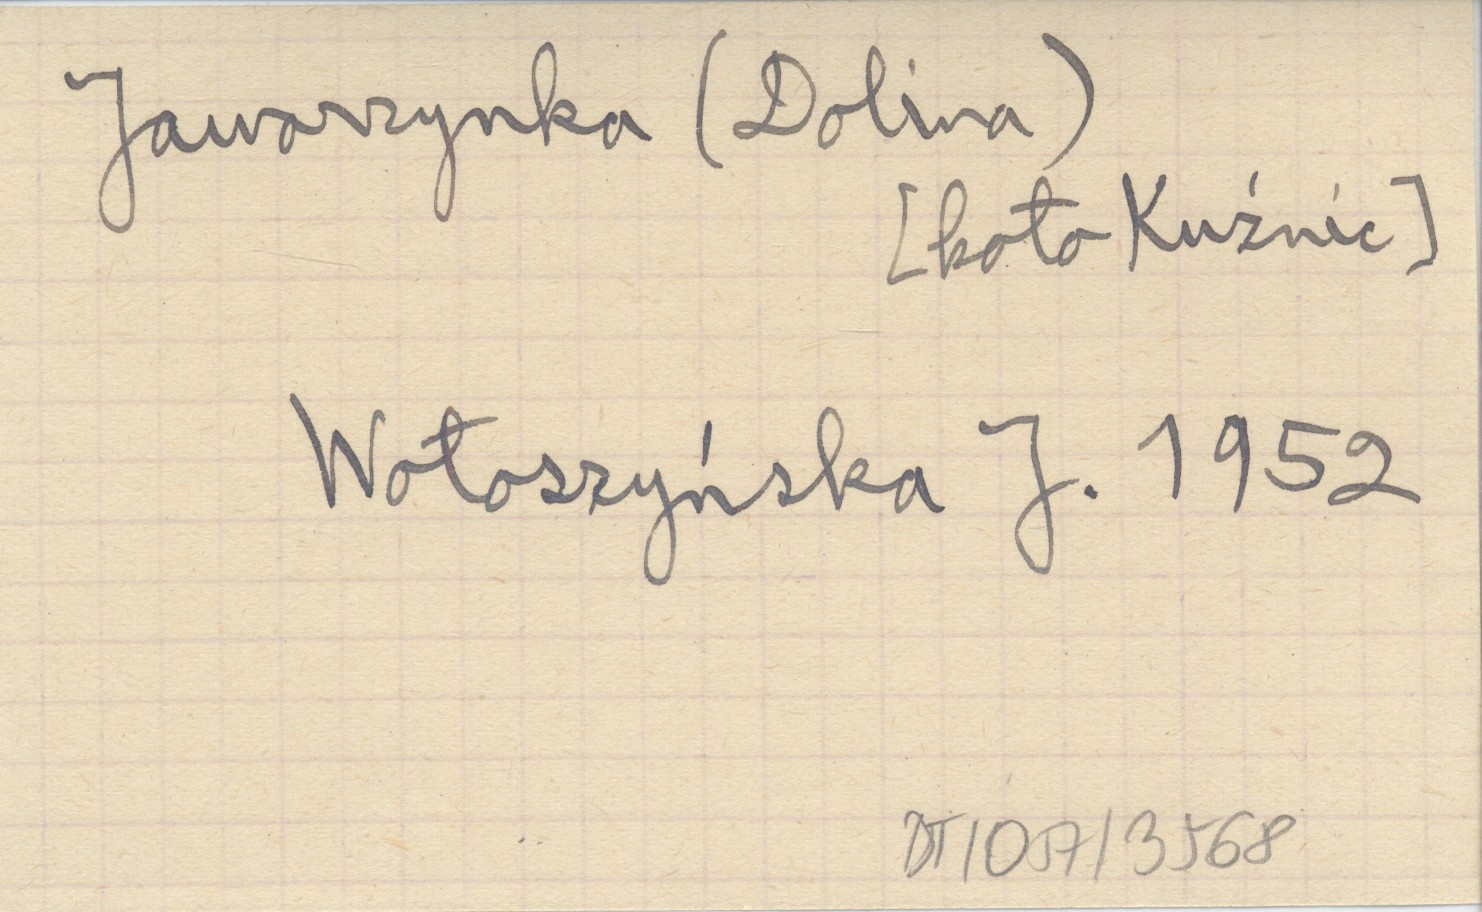 Jaworzynka (Dolina)
[koło Kuźnic]
Wołoszyńska J. 1952
DT/057/3568